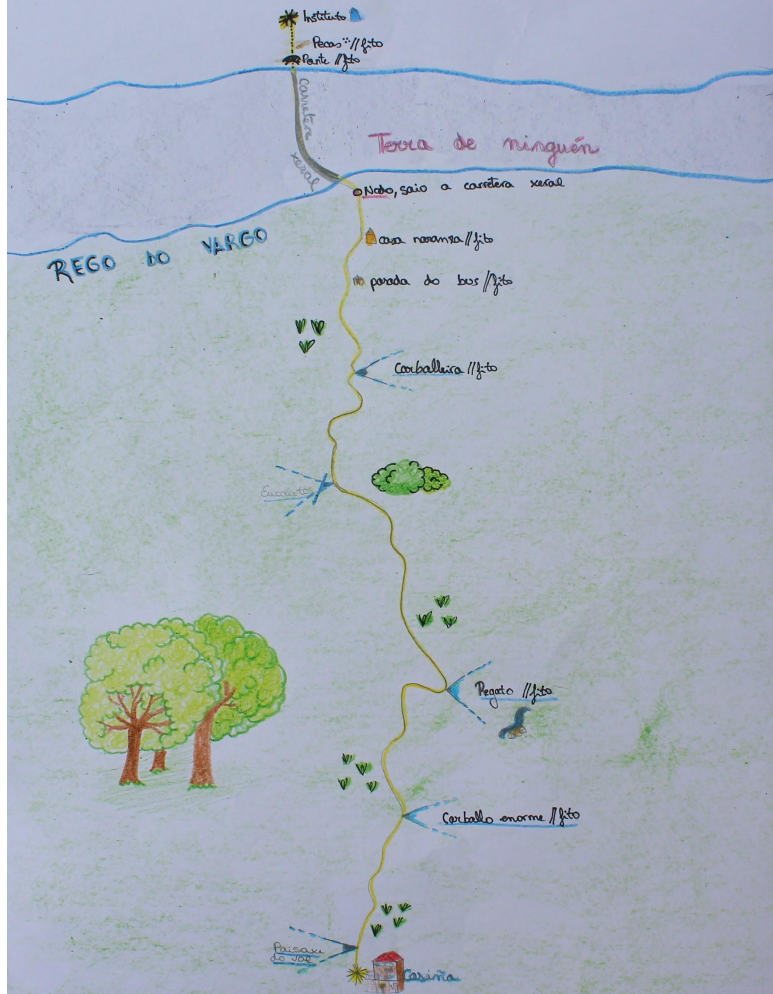 Instituto
Pezas // fito
Ponte // fito
carretera xeral
Terra de ninguén
Nodo, saio a carretera xeral
REGO DO VARGO
casa naranxa // fito
parada do bus // fito
Carballeira // fito
Eucaliptos
Regato // fito
Carballo enorme // fito
Paisaxe
do val
Casiña